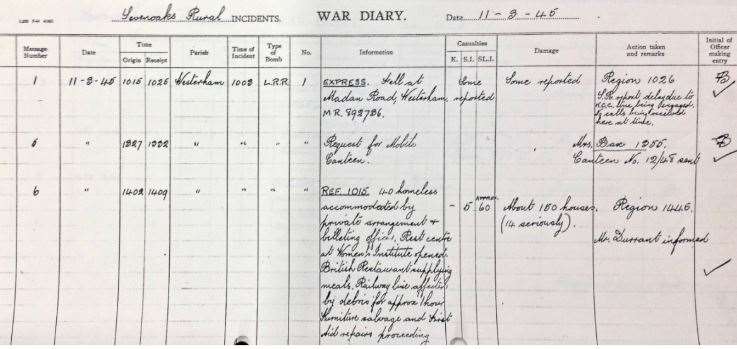 Sevenoaks Rural INCIDENTS. WAR DIARY. Date 11-3-45
Message Number Date Time Parish Time of Incident Type of Bomb No. Information Casualties Damage Action taken and remarks Initial of Officer making entry
Origin Receipt K. S.I. SL.I.
1 11-3-45 1015 1025 Westerham 1003 L.R.R 1 EXPRESS. Fell at Some Some reported Region 1026
Madan Road, Westerham, reported S.R. report, delay due to
M.R. 892736. line being engaged,
calls being received
here at time.
5 " 1327 1332 " " " " Request for Mobile " Mrs. 1355.
Canteen. Canteen No. 12/48 sent
6 " 1402 1409 " " " " REF. 1015. 40 homeless - 5 approx. 60 About 150 houses. Region 1445.
accommodated by (14 seriously).
private arrangement & Mr. Durrant informed
billeting officer, Rest centre
at Women's Institute opened.
British Restaurant supplying
meals. Railway line affected
by debris for approx 1 hour
Furniture salvage and First
Aid repairs proceeding